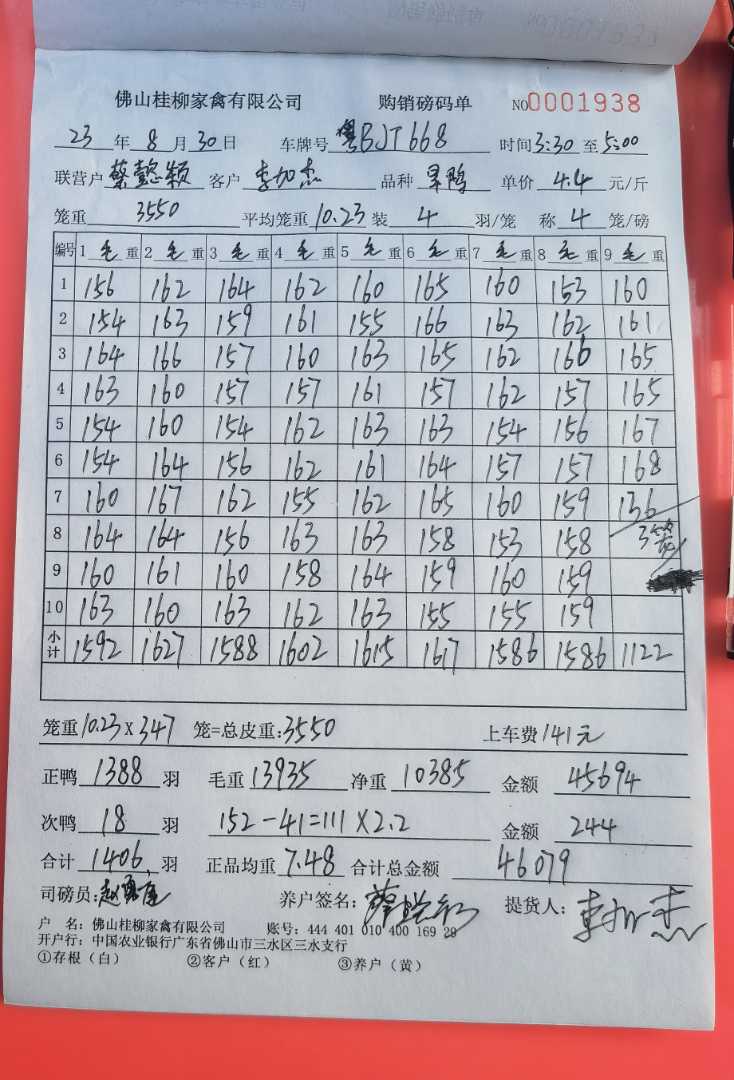 佛山桂柳家禽有限公司 购销磅码单 NO0001938
23 年 8 月 30 日 车牌号 粤BJT668 时间 3:30 至 5:00
联营户 蔡懿颖 客户 李加杰 品种 旱鸭 单价 4.4 元/斤
笼重 3550 平均笼重 10.23 装 4 羽/笼 称 4 笼/磅
编号 1 毛 重 2 毛 重 3 毛 重 4 毛 重 5 毛 重 6 毛 重 7 毛 重 8 毛 重 9 毛 重
1 156 162 164 162 160 165 160 153 160
2 154 163 159 161 155 166 163 162 161
3 164 166 157 160 163 165 162 166 165
4 163 160 157 157 161 157 162 157 165
5 154 160 154 162 163 163 154 156 167
6 154 164 156 162 161 164 157 157 168
7 160 167 162 155 162 165 160 159 136
8 164 164 156 163 163 158 153 158 3笼
9 160 161 160 158 164 159 160 159
10 163 160 163 162 163 155 155 159
小计 1592 1627 1588 1602 1615 1617 1586 1586 1122
笼重 10.23 X 347 笼=总皮重:3550 上车费 141元
正鸭 1388 羽 毛重 13935 净重 10385 金额 45694
次鸭 18 羽 152-41=111 X 2.2 金额 244
合计 1406 羽 正品均重 7.48 合计总金额 46079
司磅员: 养户签名: 提货人:
户 名: 佛山桂柳家禽有限公司 账号: 444 401 010 400 169 28
开户行: 中国农业银行广东省佛山市三水区三水支行
①存根(白) ②客户(红) ③养户(黄)